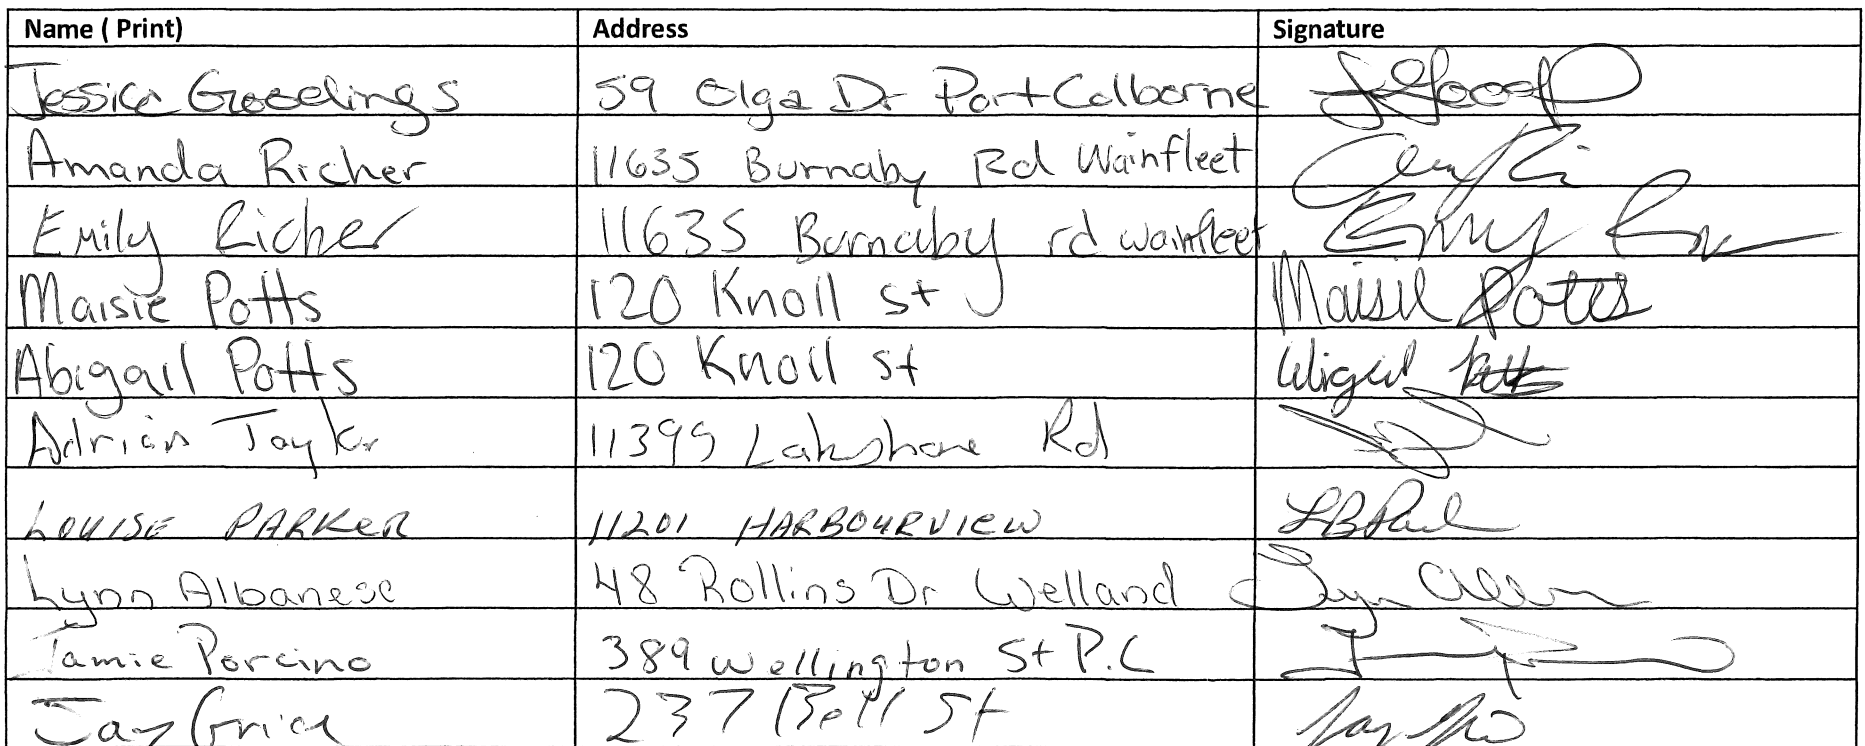 Name ( Print) Address Signature
Jessica Goodlings 59 Olga Dr Port Colborne
Amanda Richer 11635 Burnaby Rd Wainfleet
Emily Richer 11635 Burnaby rd wainfleet
Maisie Potts 120 Knoll st Maisie Potts
Abigail Potts 120 Knoll st Abigail Potts
Adrian Taylor 11399 Lakshore Rd
LOUISE PARKER 11201 HARBOURVIEW LB Park
Lynn Albanese 48 Rollins Dr Welland
Jamie Porcino 389 Wellington St P.C
Jay 237 Bell St Jay